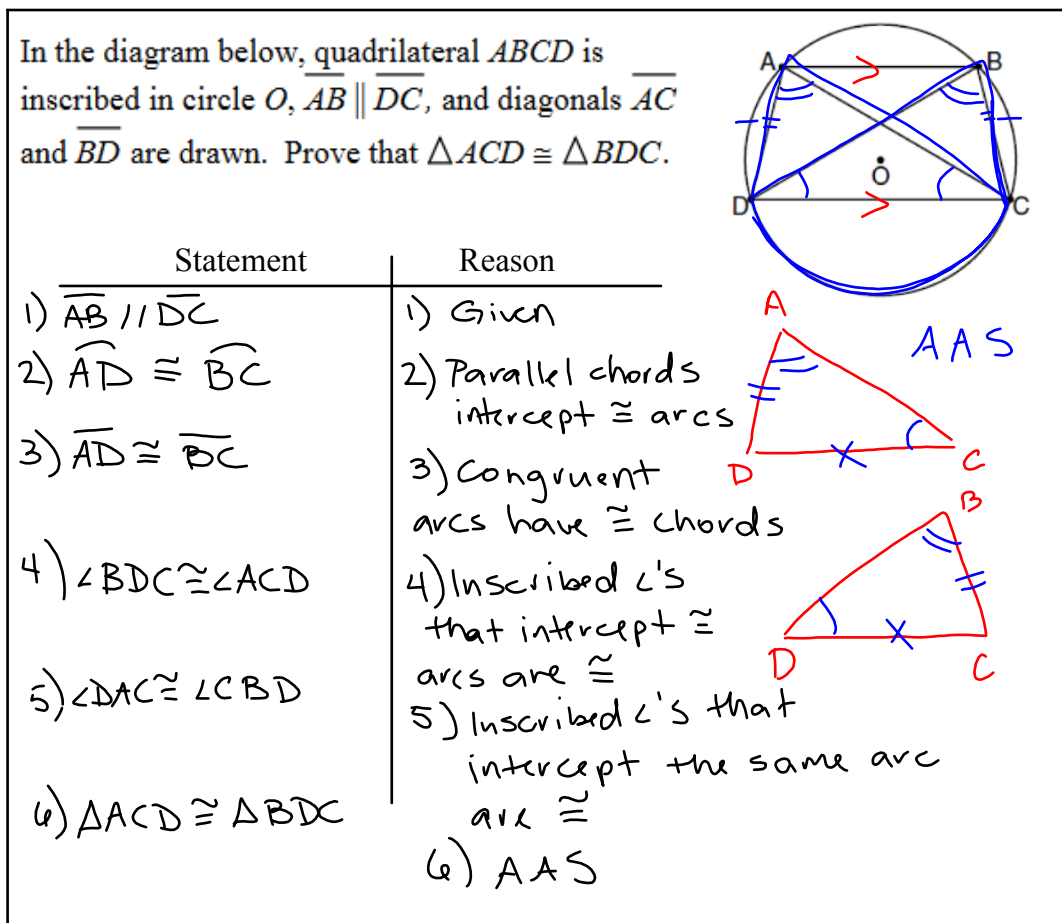 In the diagram below, quadrilateral ABCD is
inscribed in circle O, A͞B͞ || D͞C͞, and diagonals A͞C͞
and B͞D͞ are drawn. Prove that △ACD ≅ △BDC.
A
B
O
D
C
Statement
Reason
1) A͞B͞ // D͞C͞
1) Given
2) A͡D ≅ B͡C
2) Parallel chords
intercept ≅ arcs
3) A͞D͞ ≅ B͞C͞
3) Congruent
arcs have ≅ chords
4) ∠BDC ≅ ∠ACD
4) Inscribed ∠'s
that intercept ≅
arcs are ≅
5) ∠DAC ≅ ∠CBD
5) Inscribed ∠'s that
intercept the same arc
are ≅
6) △ACD ≅ △BDC
6) AAS
A
AAS
D
C
B
D
C